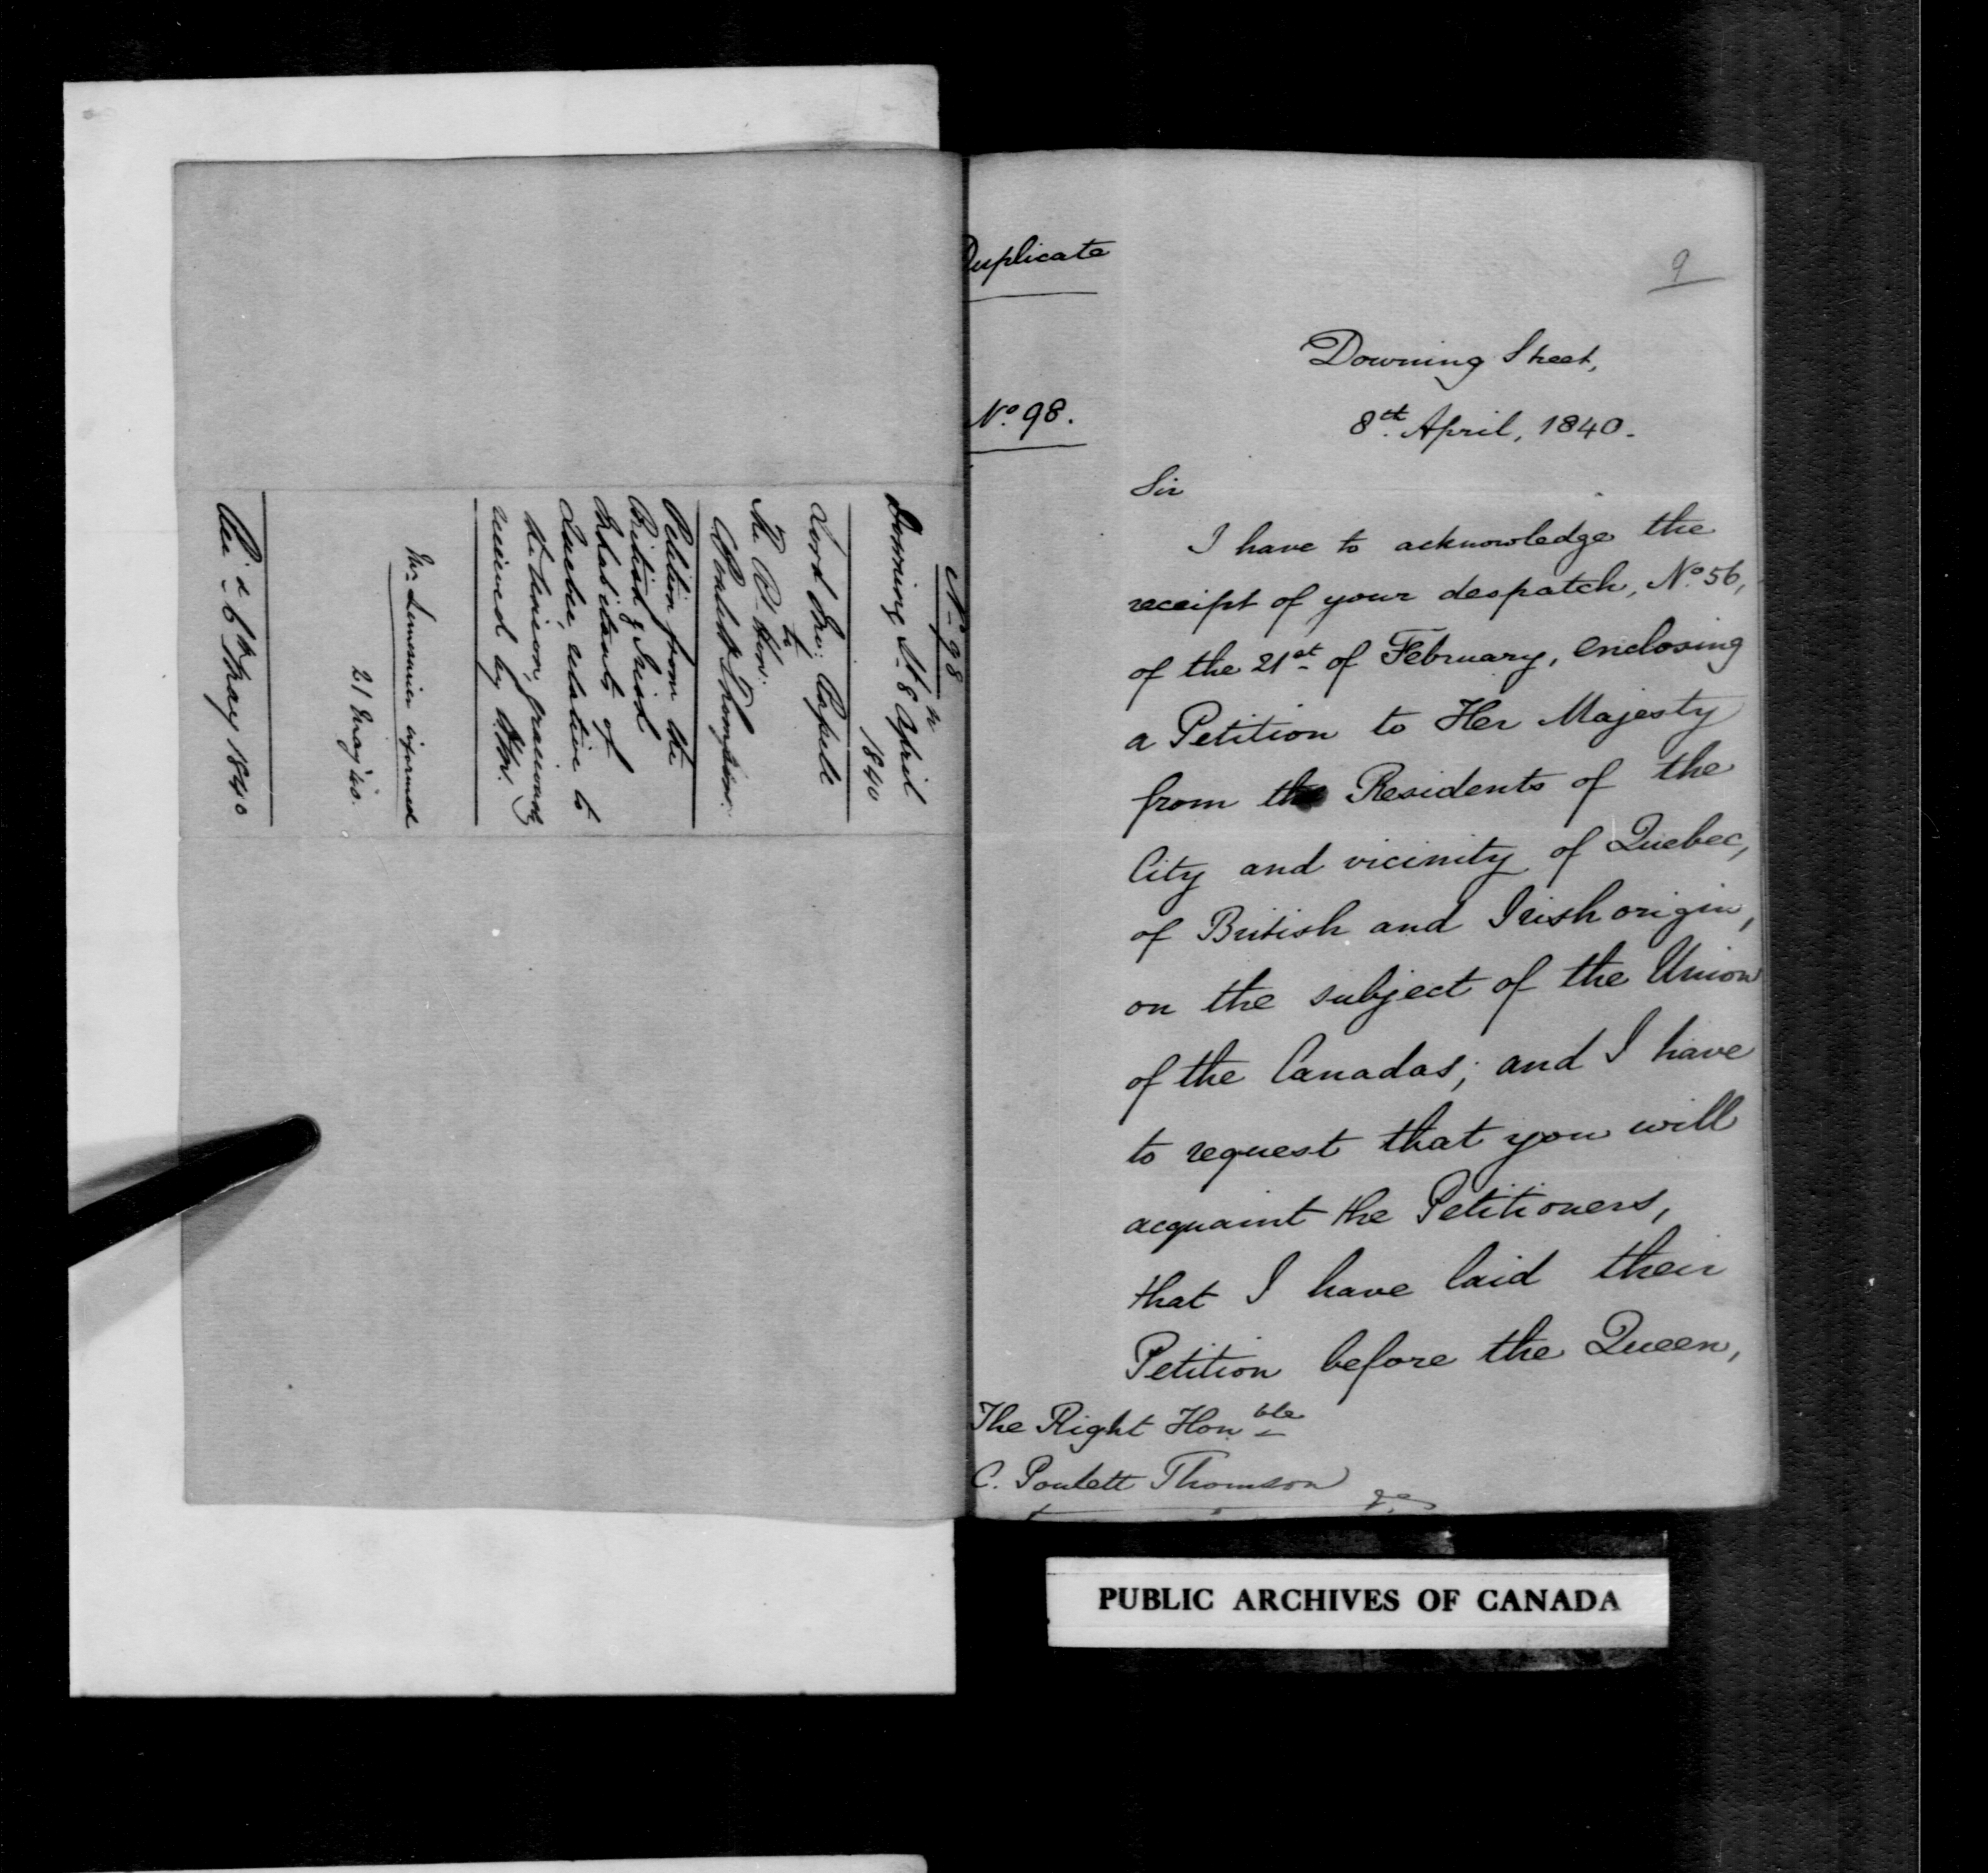 No 98
Downing St 8th April
1840
Lord Jno: Russell
to
The Rt Hon:
C Poulett Thomson.
Petition from the
British & Irish
Inhabitants of
Quebec, relative to
the Union, graciously
received by H.M.
Mr Lemesurier informed
21 May '40.
Rec'd 6th May 1840
Duplicate
9
No 98.
Downing Street,
8th April, 1840.
Sir
I have to acknowledge the
receipt of your despatch, No 56,
of the 21st of February, enclosing
a Petition to Her Majesty
from the Residents of the
City and vicinity of Quebec,
of British and Irish origin,
on the subject of the Union
of the Canadas; and I have
to request that you will
acquaint the Petitioners,
that I have laid their
Petition before the Queen,
The Right Honble
C. Poulett Thomson
PUBLIC ARCHIVES OF CANADA